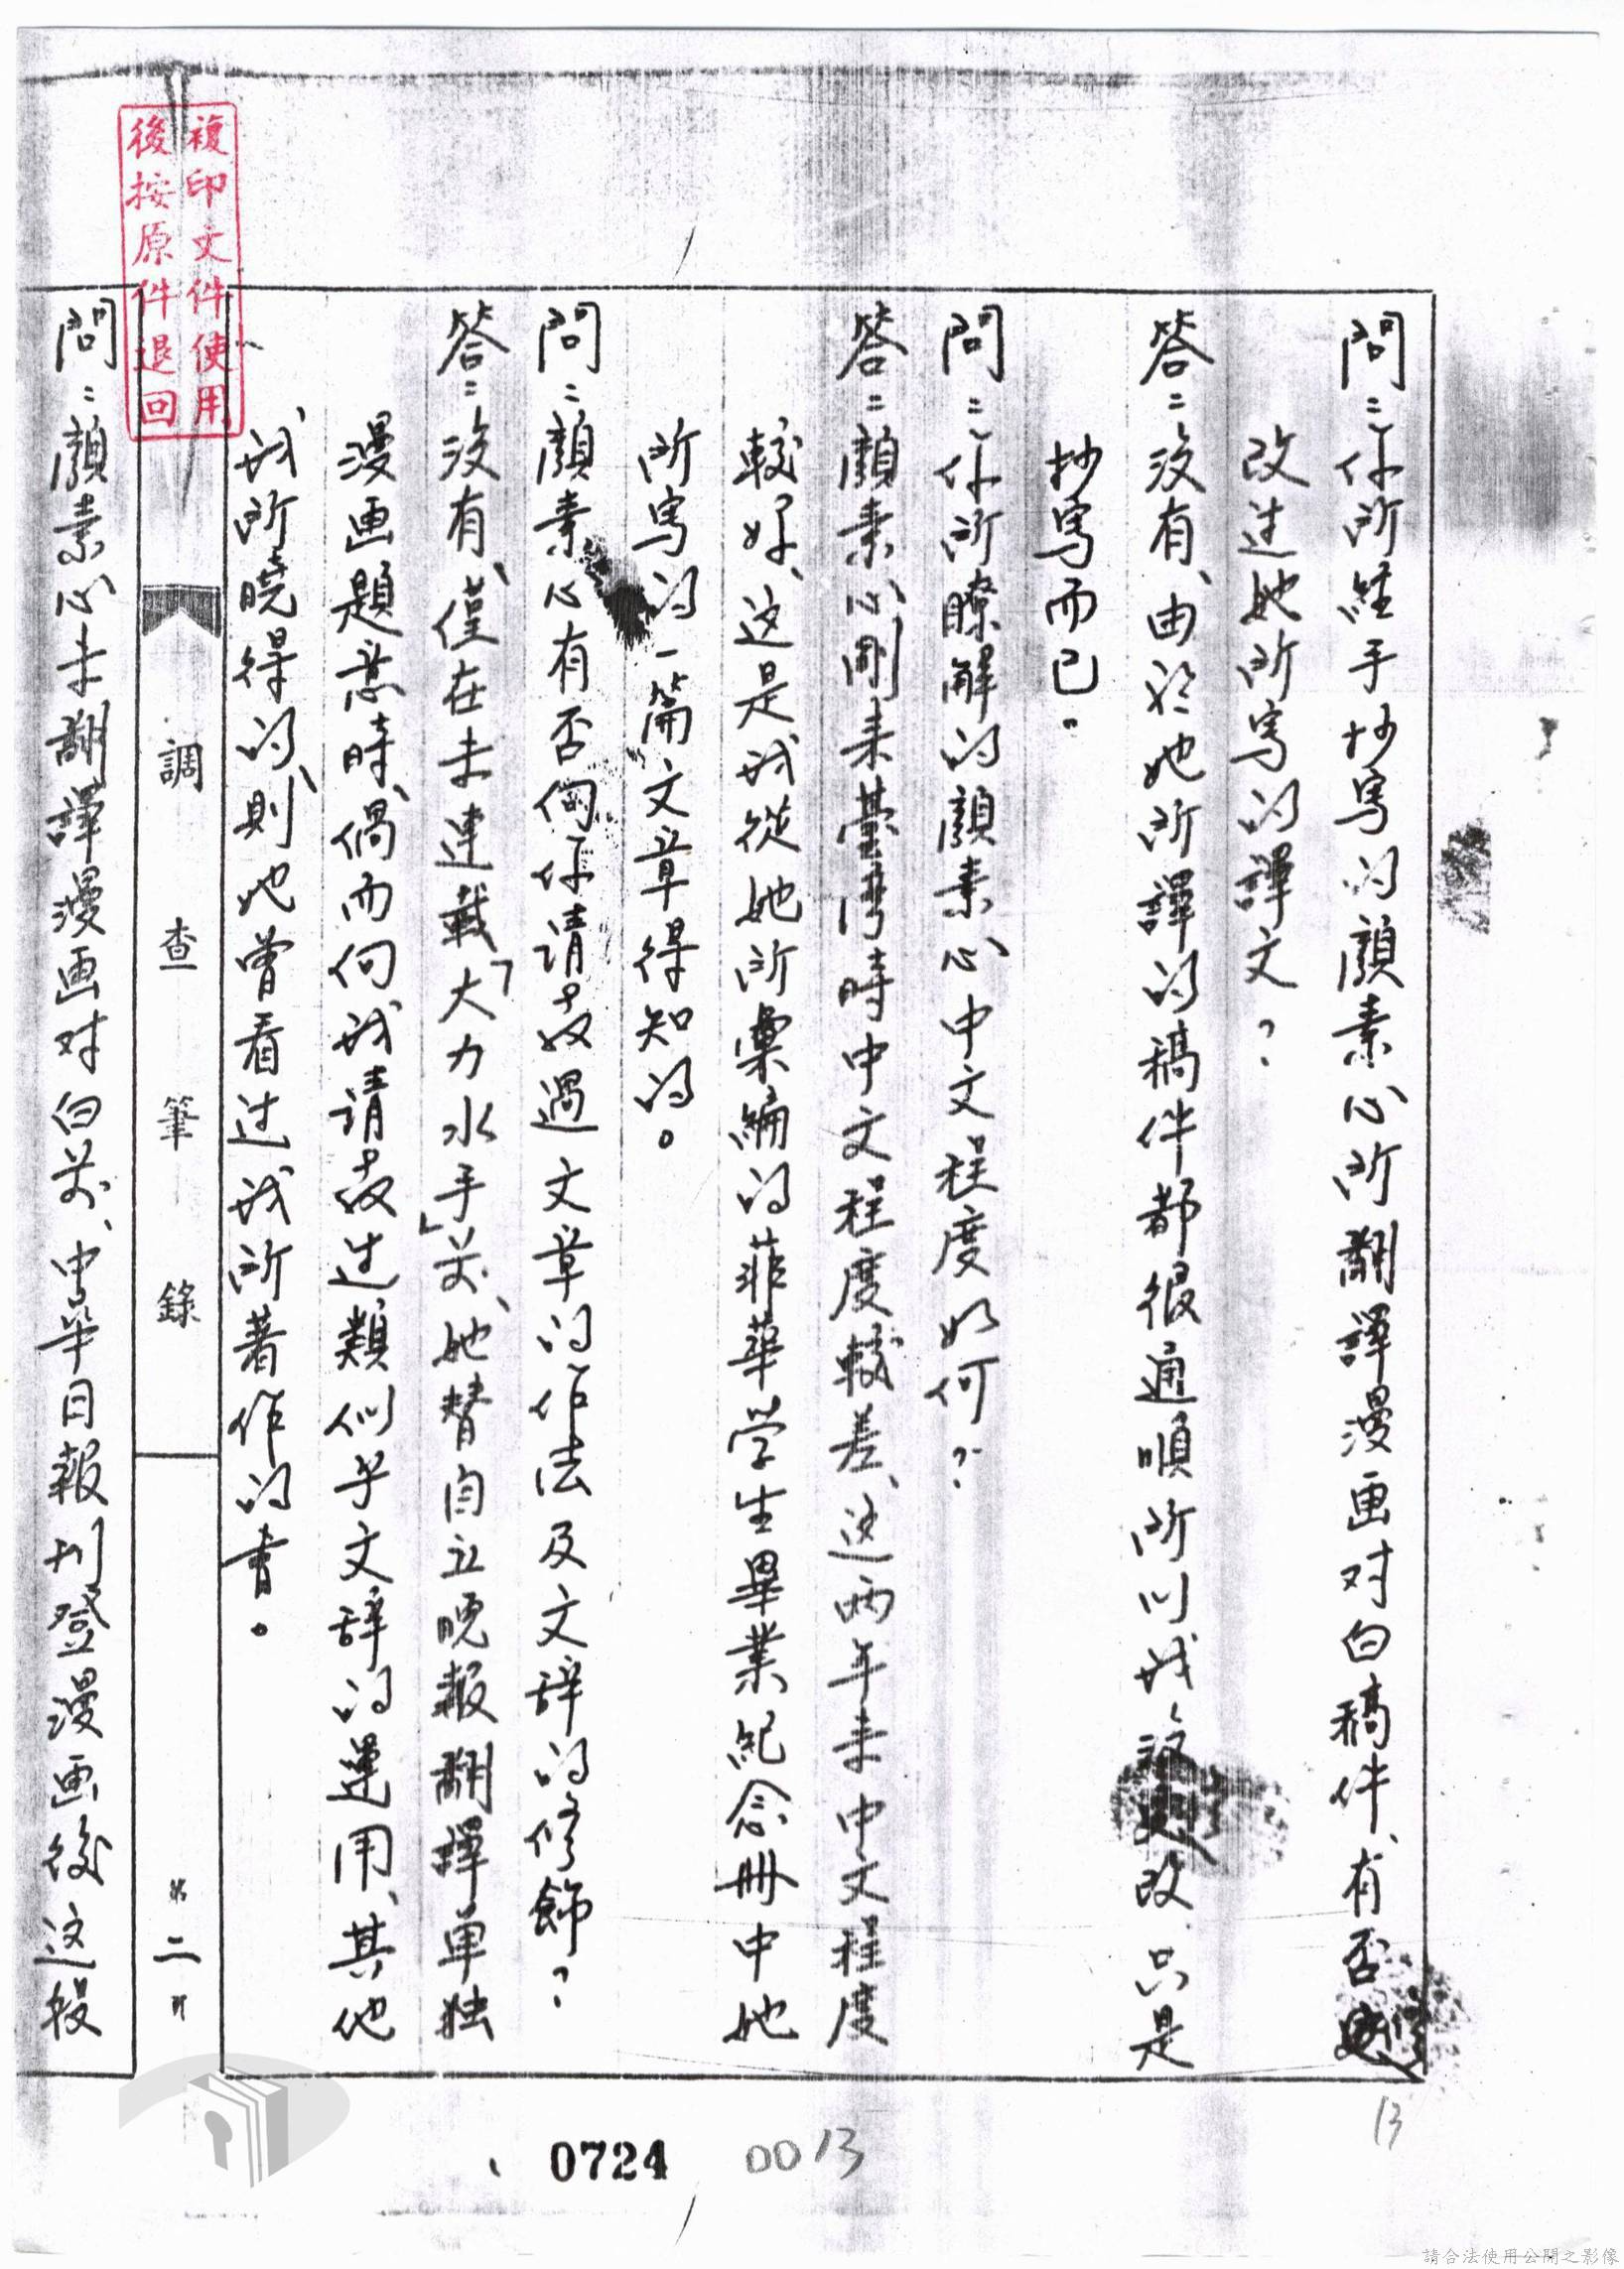 問：你所經手抄寫的顏素心所翻譯漫画对白稿件、有否
改过她所寫的譯文？
答：沒有、由於她所譯的稿件都很通順所以我沒改、只是
抄寫而已。
問：你所瞭解的顏素心中文程度如何？
答：顏素心剛来臺灣時中文程度較差、这两年来中文程度
較好、这是我從她所彙編的菲華学生畢業紀念冊中她
所寫的一篇文章得知的。
問：顏素心有否向你请教過文章的作法及文辞的修飾？
答：沒有、僅在未連載「大力水手」前、她替自立晚報翻譯单独
漫画題意時、偶而向我请教过類似乎文辞的運用、其他
我所曉得的、則她曾看过我所著作的書。
調查筆錄
第二頁
問：顏素心未翻譯漫画对白前、中华日報刊登漫画後这段
複印文件使用
後按原件退回
13
0724
0013
請合法使用公開之影像